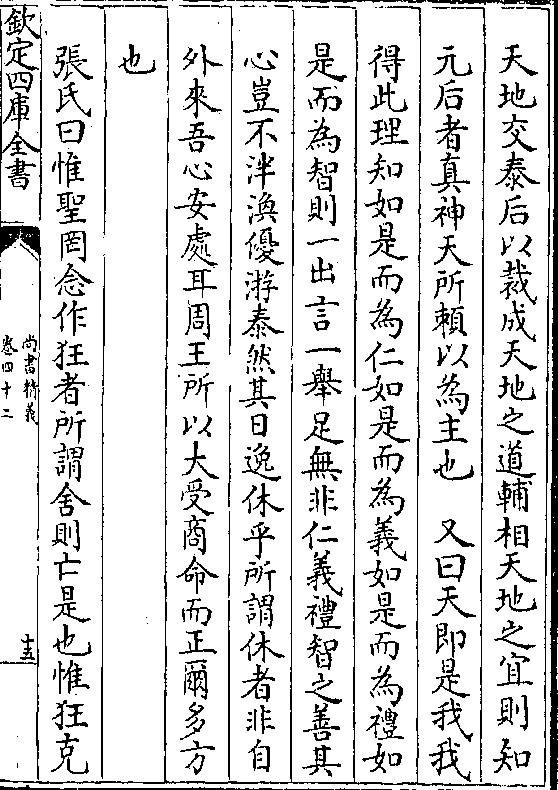 天地交泰后以裁成天地之道輔相天地之宜則知
元后者真神天所賴以為主也　又曰天即是我我
得此理知如是而為仁如是而為義如是而為禮如
是而為智則一出言一舉足無非仁義禮智之善其
心豈不泮渙優游泰然其日逸休乎所謂休者非自
外來吾心安處耳周王所以大受商命而正爾多方
也
張氏曰惟聖罔念作狂者所謂舍則亡是也惟狂克
欽定四庫全書
尚書精義
卷四十二
十五